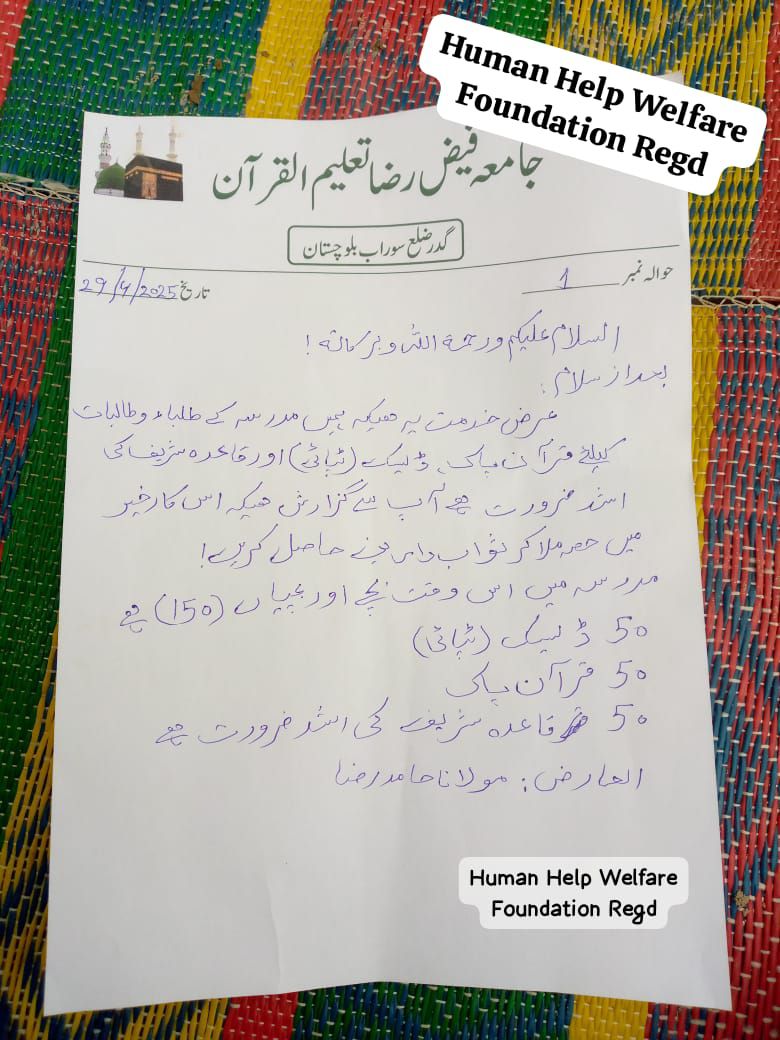 Human Help Welfare
Foundation Regd
جامعہ فیض رضا تعلیم القرآن
گدر ضلع سوراب بلوچستان
حوالہ نمبر 1
تاریخ 29/6/2025
السلام علیکم ورحمۃ اللہ وبرکاتہ!
بعد از سلام:
عرض خدمت یہ ھیکہ ہمیں مدرسہ کے طلباء وطالبات
کیلئے قرآن پاک، ڈیسک (ٹپائی) اور قاعدہ شریف کی
اشد ضرورت ھے آپ سے گزارش ھیکہ اس کار خیر
میں حصہ ملا کر ثواب دارین حاصل کریں!
مدرسہ میں اس وقت بچے اور بچیاں (150) ھے
50 ڈیسک (ٹپائی)
50 قرآن پاک
50 قاعدہ شریف کی اشد ضرورت ھے
العارض: مولانا حامد رضا
Human Help Welfare
Foundation Regd